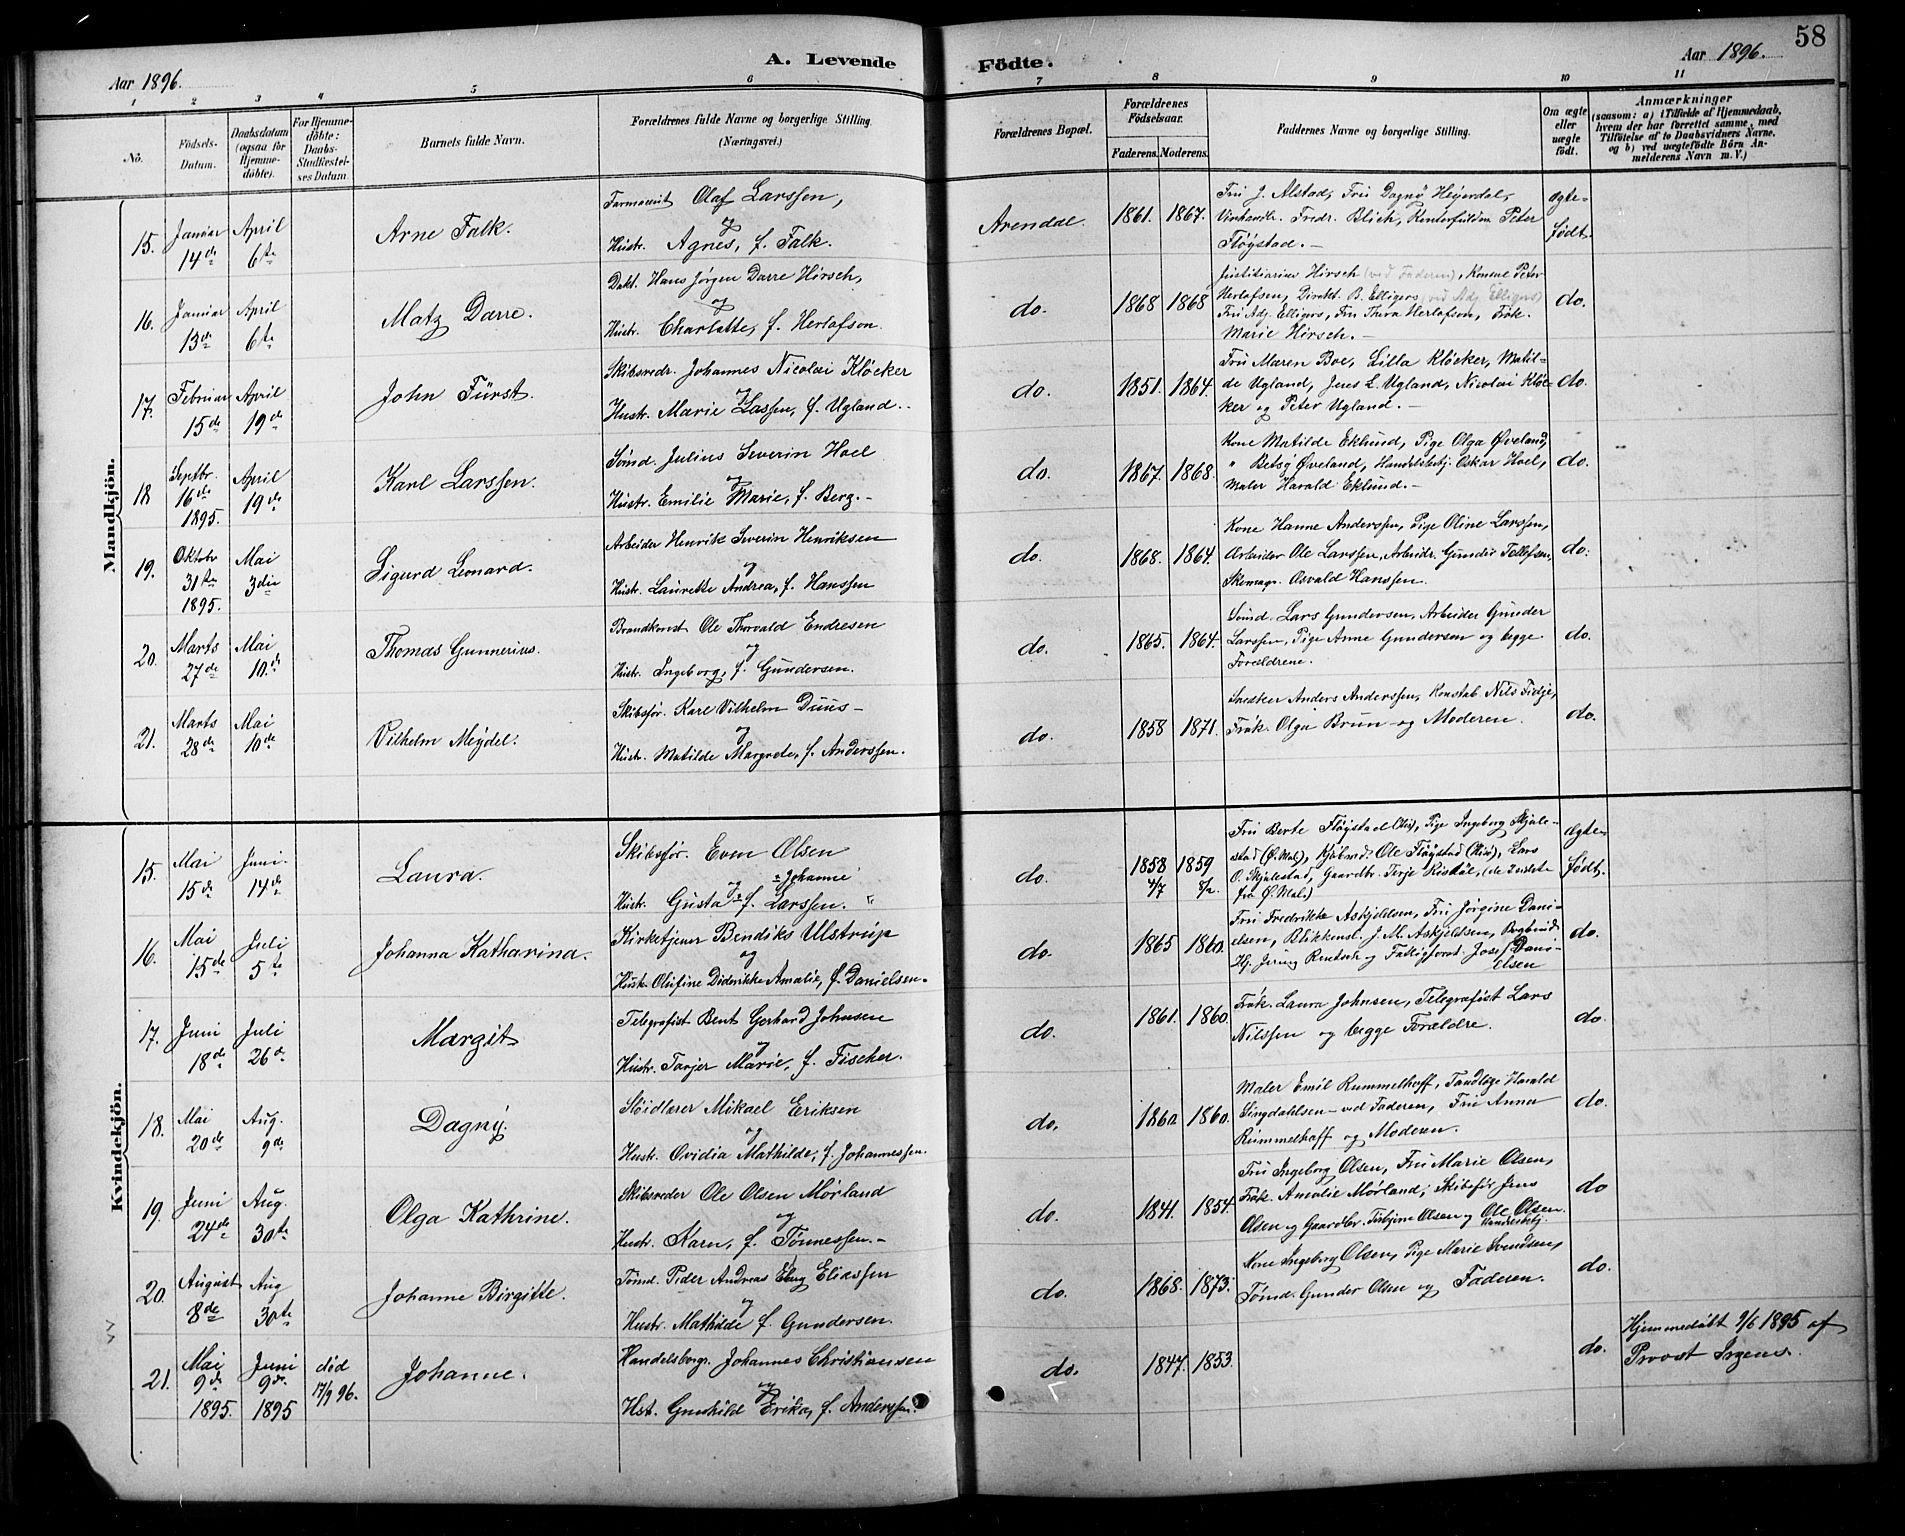 58
Aar 1896.
A. Levende
Födte.
Aar 1896.
1 2 3 4 5 6 7 8 9 10 11
No.
Födsels-
Datum.
Daabsdatum
(ogsaa for
Hjemme-
döbte).
For Hjemme-
döbte:
Daabs-
Stadfæstel-
ses Datum
Barnets fulde Navn.
Forældrenes fulde Navne og borgerlige Stilling
(Næringsvei.)
Forældrenes Bopæl.
Forældrenes
Födselsaar.
Faderens. Moderens.
Faddernes Navne og borgerlige Stilling.
Om ægte
eller
uægte
födt.
Anmærkninger
(saasom: a) i Tilfælde af Hjemmedaab,
hvem der har forrettet samme, med
Tilföielse af to Daabsvidners Navne.
og b) ved uægtefödte Börn An-
melderens Navn m. V.)
Mandkjön.
15. Januar 14de April 6te
Arne Falk.
Farmaceut Olaf Larssen,
og
Hustr. Agnes, f. Falk.
Arendal. 1861. 1867.
Fru J. Alstad, Fru Dagny Heyerdal,
Vinhandlr. Fredr. Blich, Kontorfuldm. Peter
Fløystad. –
ægte-
født.
16. Januar 13de April 6te
Matz Darre.
Dakt. Hans Jørgen Darre Hirsch,
og
Hustr. Charlotte, f. Herlofson.
do. 1868 1868
Justitiarius Hirsch (ved Faderen), Konsul Peter
Herlofsen, Direkt. B. Elligers (ved Adj. Elligers)
Fru Adj. Elligers, Fru Thora Herlofson, Frøk.
Marie Hirsch. –
do.
17. Februar 15de April 19de
John Fürst.
Skibsredr. Johannes Nicolai Kløcker
og
Hustr. Marie Lassen, f. Ugland.
do. 1851. 1864.
Fru Maren Boe, Lilla Kløcker, Matil-
de Ugland, Jens L. Ugland, Nicolai Klø-
ker og Peter Ugland. –
do.
18 Septbr. 16de 1895. April 19de
Karl Larssen.
Sømd. Julius Severin Hoel
og
Hustr. Emilie Marie, f. Berg. –
do. 1867. 1868.
Kone Matilde Eklund, Pige Olga Øveland,
" Betsy Øveland, Handelsbetj. Oskar Hoel,
Maler Harald Eklund. –
do.
19. Oktobr 31te 1895. Mai 3die
Sigurd Leonard.
Arbeider Henrik Severin Henriksen
og
Hustr. Laurette Andrea, f. Hanssen
do. 1868. 1864.
Kone Hanne Anderssen, Pige Oline Larssen,
Arbeider Ole Larssen, Arbeidr. Gunder Tellefsen,
Skomagr. Osvald Hanssen.
do.
20. Marts 27de Mai 10de
Thomas Gunnerius.
Brandkonst Ole Thorvald Endresen
og
Hustr. Ingeborg, f. Gundersen.
do. 1865. 1864.
Sømd. Lars Gundersen, Arbeider Gunder
Larssen, Pige Anne Gundersen og begge
Forældrene.
do.
21. Marts 28de Mai 10de
Vilhelm Meydel.
Skibsfør. Karl Vilhelm Duus –
og
Hustr. Matilde Margrete, f. Anderssen.
do. 1858 1871.
Snedker Anders Anderssen, Konstab. Nils Fidje,
Frøk. Olga Brun og Moderen.
do.
Kvindekjön.
15. Mai 15de Juni. 14de
Laura.
Skibsfør. Even Olsen
og Johanne
Hustr. Gusta f. Larssen.
do. 1858 4/7 1859 8/2
Fru Berte Fløystad, Pige Ingeborg Skjule-
stad (Ø. Mol.), Kjøbmd. Ole Fløystad, Lars
O. Skjulestad, Gaardbr. Terje (de 2 sidste
fra Ø. Mol.)
ægte-
født.
16. Mai 15de Juli 5te
Johanna Katharina.
Kirketjener Bendiks Ulstrup
og
Hustr. Olufine Diderikke Amalie, f. Danielsen.
do. 1865 1860.
Fru Fredrikke Askjeldsen, Fru Jørgine Dani-
elsen, Blikkensl. J. M. Askjeldsen, Bogbinder
og Fattigforst. Josef Dani-
elsen
do.
17. Juni 18de Juli 26de
Margit
Telegrafist Bent Gerhard Johnsen
og
Hustr. Torjer Marie, f. Fischer.
do. 1861. 1860.
Frøk. Laura Johnsen, Telegrafist Lars
Nilssen og begge Forældre.
do.
18. Mai 20de Aug. 9de
Dagny.
Sløidlærer Mikael Eriksen
og
Hustr. Ovidia Mathilde, f. Johannessen.
do. 1860. 1860.
Maler Emil Rummelhoff, Tandlæge Harald
Singdahlsen – ved Faderen, Fru Anna
Rummelhoff og Moderen.
do.
19. Juni 24de Aug. 30te
Olga Kathrine.
Skibsreder Ole Olsen Mørland
og
Hustr. Karn, f. Tønnessen. –
do. 1841. 1854.
Fru Ingeborg Olsen, Fru Marie Olsen,
Frøk. Amalie Mørland, Skibsfør Jens
Olsen og Gaardbr. Torbjørn Olsen og Ole Olsen.
Handelsbetj.
do
20. August 8de Aug 30te
Johanne Birgitte.
Tømd. Peder Andreas Ebug Eliassen
og
Hustr. Mathilde f. Gundersen.
do. 1868. 1873.
Kone Ingeborg Olsen, Pige Marie Svendsen,
Tømd. Gunder Olsen og Faderen.
do.
21. Mai 9de 1895. Juni 9de 1895 død 17/9 96.
Johanne.
Handelsborgr. Johannes Christiansen
og
Hst. Gunhild Erika, f. Anderssen.
do. 1847. 1853.
do.
Hjemmedøbt 9/6 1895 af
Provst Irgens.